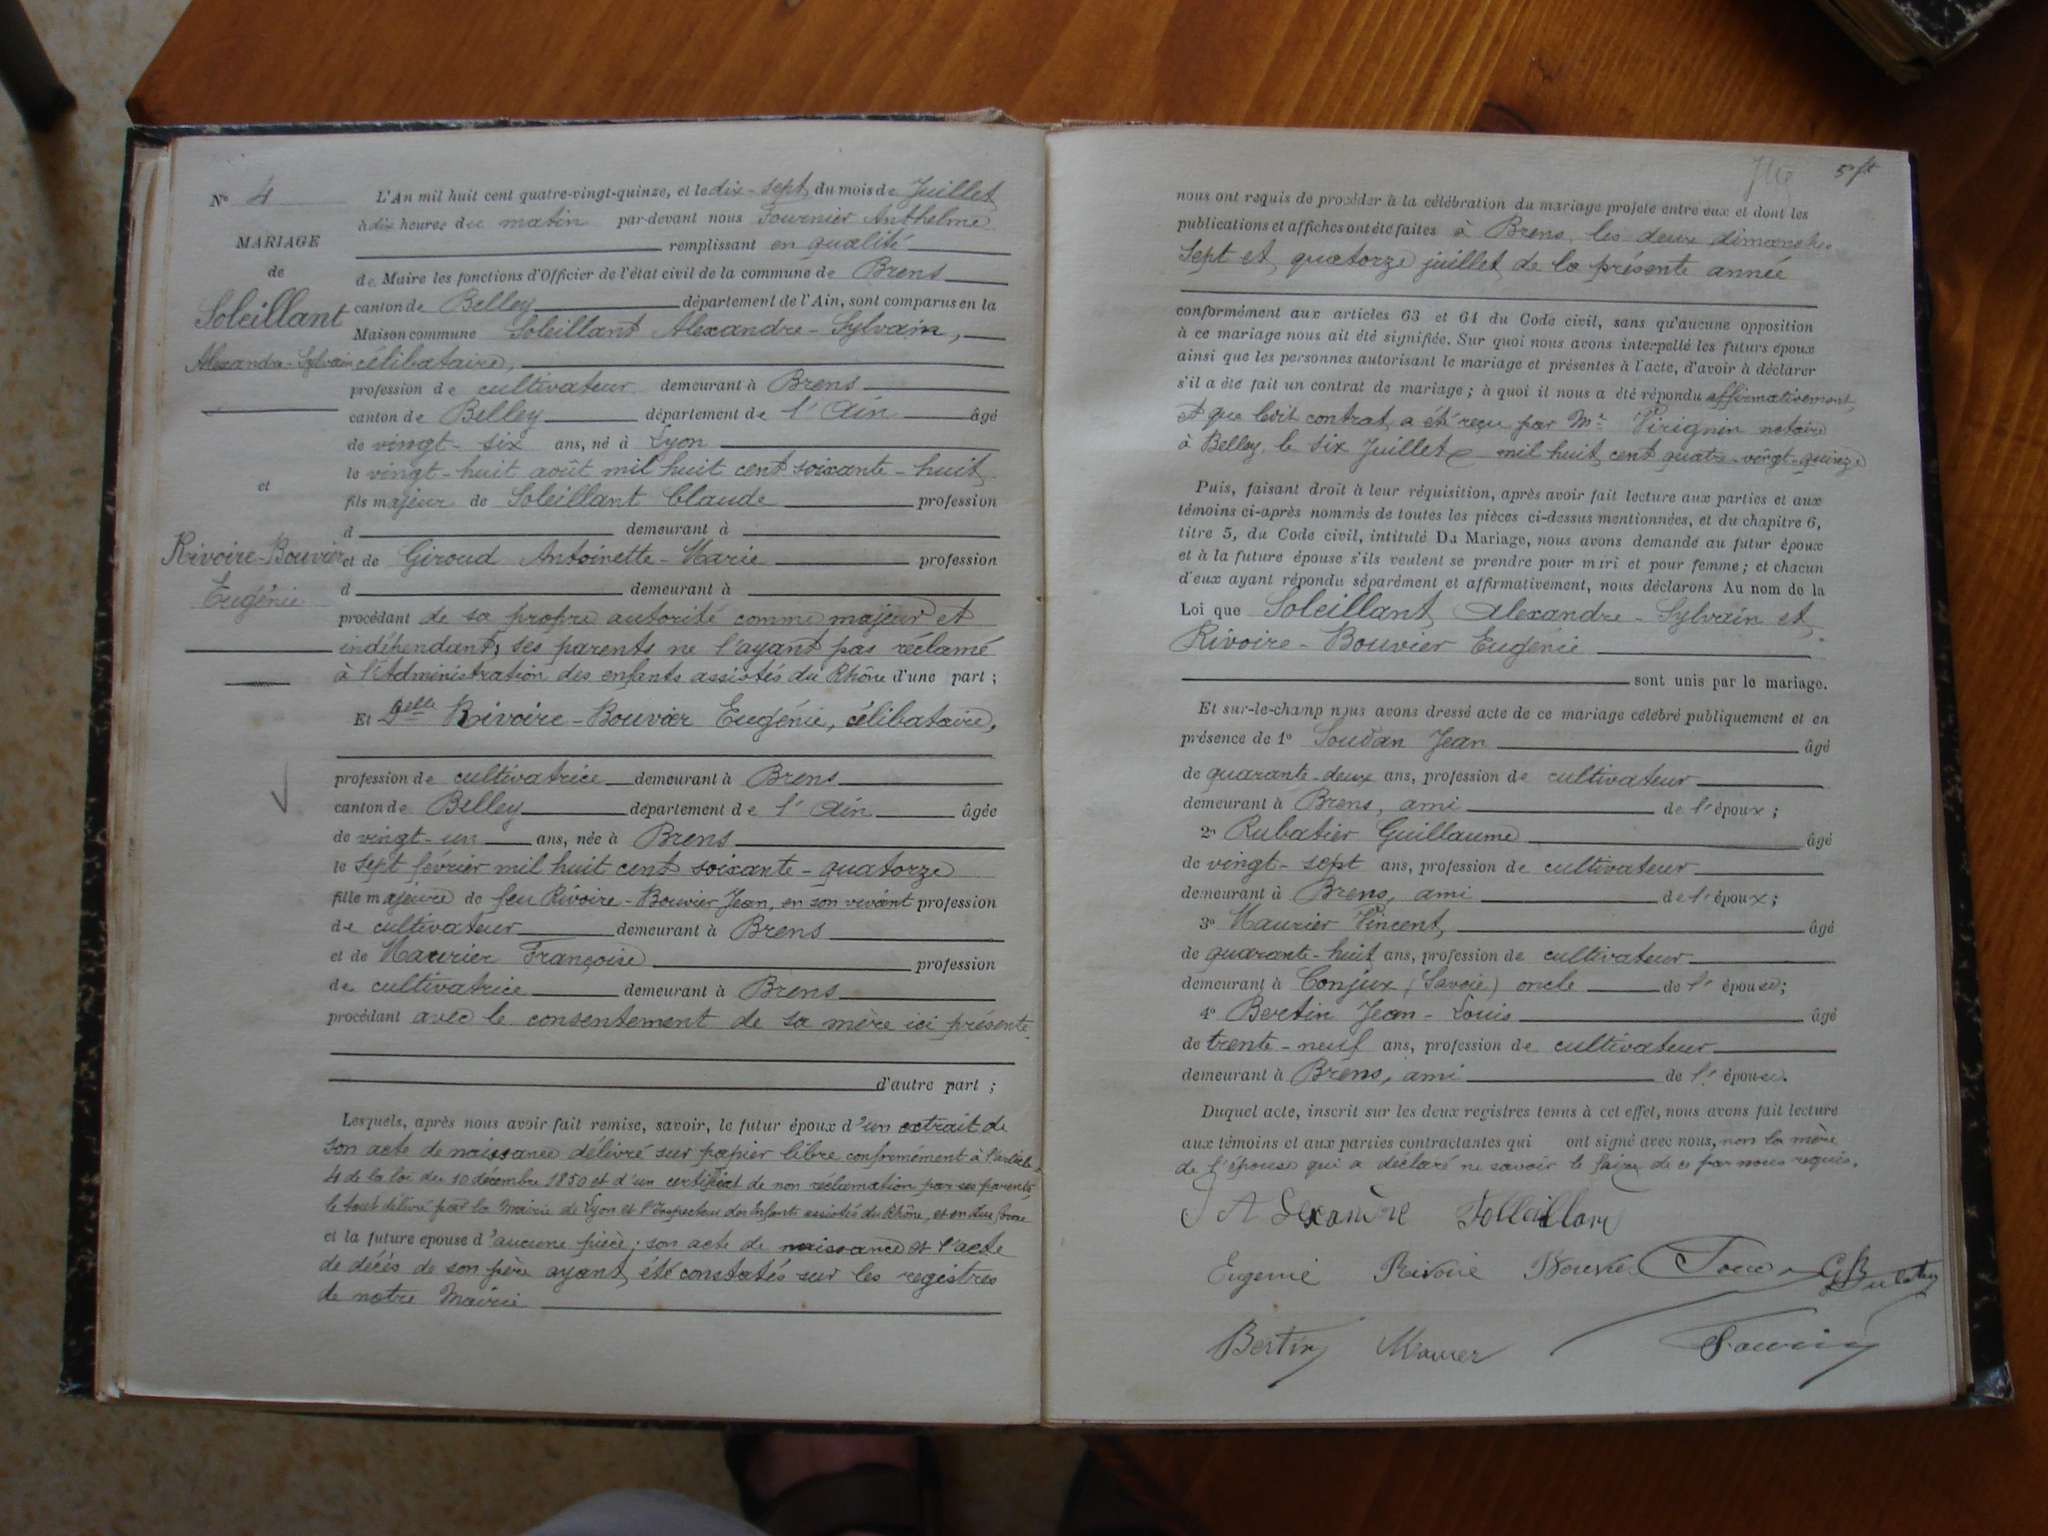 N° 4
MARIAGE
de
Soleillant
Alexandre-Sylvain
et
Rivoire-Bouvier
Eugénie
L'An mil huit cent quatre-vingt-quinze, et le dix-sept du mois de Juillet
à dix heures du matin par-devant nous Fournier Anthelme
remplissant en qualité
de Maire les fonctions d'Officier de l'état civil de la commune de Brens
canton de Belley département de l'Ain, sont comparus en la
Maison commune Soleillant Alexandre-Sylvain,
célibataire,
profession de cultivateur demeurant à Brens
canton de Belley département de l'Ain âgé
de vingt-six ans, né à Lyon
le vingt-huit août mil huit cent soixante-huit
fils majeur de Soleillant Claude profession
d demeurant à
et de Giroud Antoinette-Marie profession
d demeurant à
procédant de sa propre autorité comme majeur et
indépendant, ses parents ne l'ayant pas réclamé
à l'Administration des enfants assistés du Rhône d'une part ;
Et Delle Rivoire-Bouvier Eugénie, célibataire,
profession de cultivatrice demeurant à Brens
canton de Belley département de l'Ain âgée
de vingt-un ans, née à Brens
le sept février mil huit cent soixante-quatorze
fille majeure de feu Rivoire-Bouvier Jean, en son vivant profession
de cultivateur demeurant à Brens
et de Maurier Françoise profession
de cultivatrice demeurant à Brens
procédant avec le consentement de sa mère ici présente
d'autre part ;
Lesquels, après nous avoir fait remise, savoir, le futur époux d'un extrait de
son acte de naissance délivré sur papier libre conformément à l'article
4 de la loi du 10 décembre 1850 et d'un certificat de non réclamation par ses parents,
le tout délivré par la Mairie de Lyon et l'Inspecteur des Enfants assistés du Rhône, et en due forme
et la future épouse d'aucune pièce ; son acte de naissance et l'acte
de décès de son père ayant été constatés sur les registres
de notre Mairie
5 ft
nous ont requis de procéder à la célébration du mariage projeté entre eux et dont les
publications et affiches ont été faites à Brens, les deux dimanches
sept et quatorze juillet de la présente année
conformément aux articles 63 et 64 du Code civil, sans qu'aucune opposition
à ce mariage nous ait été signifiée. Sur quoi nous avons interpellé les futurs époux
ainsi que les personnes autorisant le mariage et présentes à l'acte, d'avoir à déclarer
s'il a été fait un contrat de mariage ; à quoi il nous a été répondu affirmativement,
et que ledit contrat a été reçu par Me Pirignin notaire
à Belley, le six Juillet mil huit cent quatre-vingt-quinze
Puis, faisant droit à leur réquisition, après avoir fait lecture aux parties et aux
témoins ci-après nommés de toutes les pièces ci-dessus mentionnées, et du chapitre 6,
titre 5, du Code civil, intitulé Du Mariage, nous avons demandé au futur époux
et à la future épouse s'ils veulent se prendre pour mari et pour femme ; et chacun
d'eux ayant répondu séparément et affirmativement, nous déclarons Au nom de la
Loi que Soleillant Alexandre-Sylvain et
Rivoire-Bouvier Eugénie
sont unis par le mariage.
Et sur-le-champ nous avons dressé acte de ce mariage célébré publiquement et en
présence de 1° Soudan Jean âgé
de quarante-deux ans, profession de cultivateur
demeurant à Brens, ami de l'époux ;
2° Rubatier Guillaume âgé
de vingt-sept ans, profession de cultivateur
demeurant à Brens, ami de l'époux ;
3° Maurier Vincent, âgé
de quarante-huit ans, profession de cultivateur
demeurant à Conjux (Savoie) oncle de l'épouse ;
4° Bertin Jean-Louis âgé
de trente-neuf ans, profession de cultivateur
demeurant à Brens, ami de l'épouse.
Duquel acte, inscrit sur les deux registres tenus à cet effet, nous avons fait lecture
aux témoins et aux parties contractantes qui ont signé avec nous, non la mère
de l'épouse qui a déclaré ne savoir le faire de ce par nous requis.
Alexandre Solleillant
Eugenie Rivoire Bouvier
Bertin Maurier Fournier